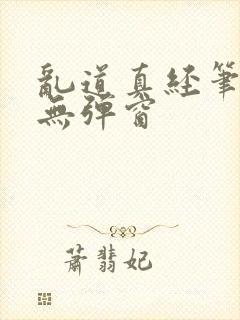 亂道真經筆
無彈窗
蕭翡妃